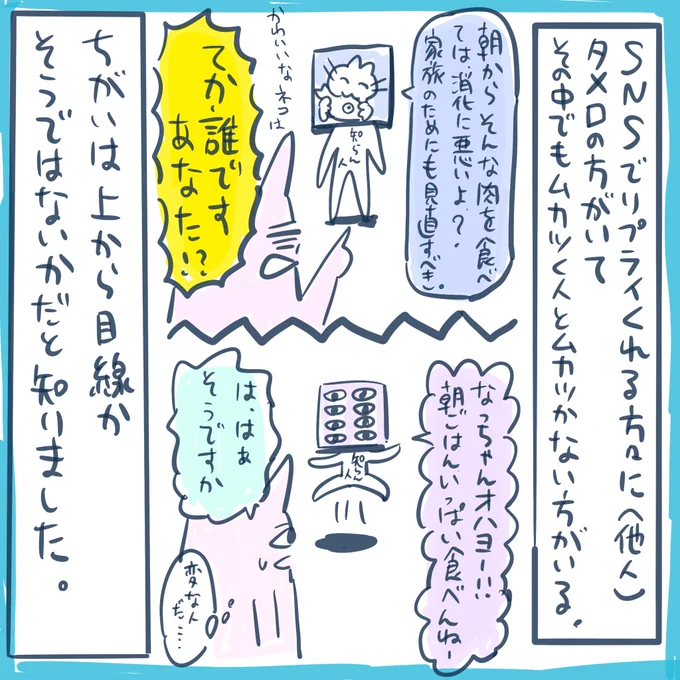 SNSでリプライくれる方々に(他人)
タメ口の方がいて
その中でもムカツく人とムカツかない方がいる。
朝からそんな肉を食べ
ては消化に悪いよ？.
家族のためにも見直すべき。
知らん
人
かわいいな ネコは
てか誰です
あなた!?
なっちゃんオハヨー!!
朝ごはんいっぱい食べんねー
知らん
人
は、はぁ
そうですか
変な人
だ…
ちがいは上から目線か
そうではないかだと知りました。